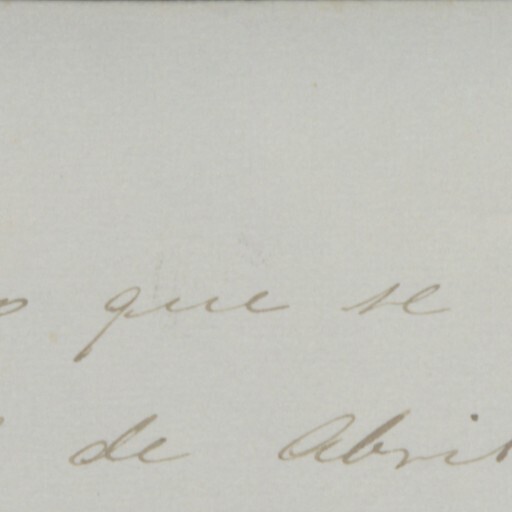 que se
de Abril